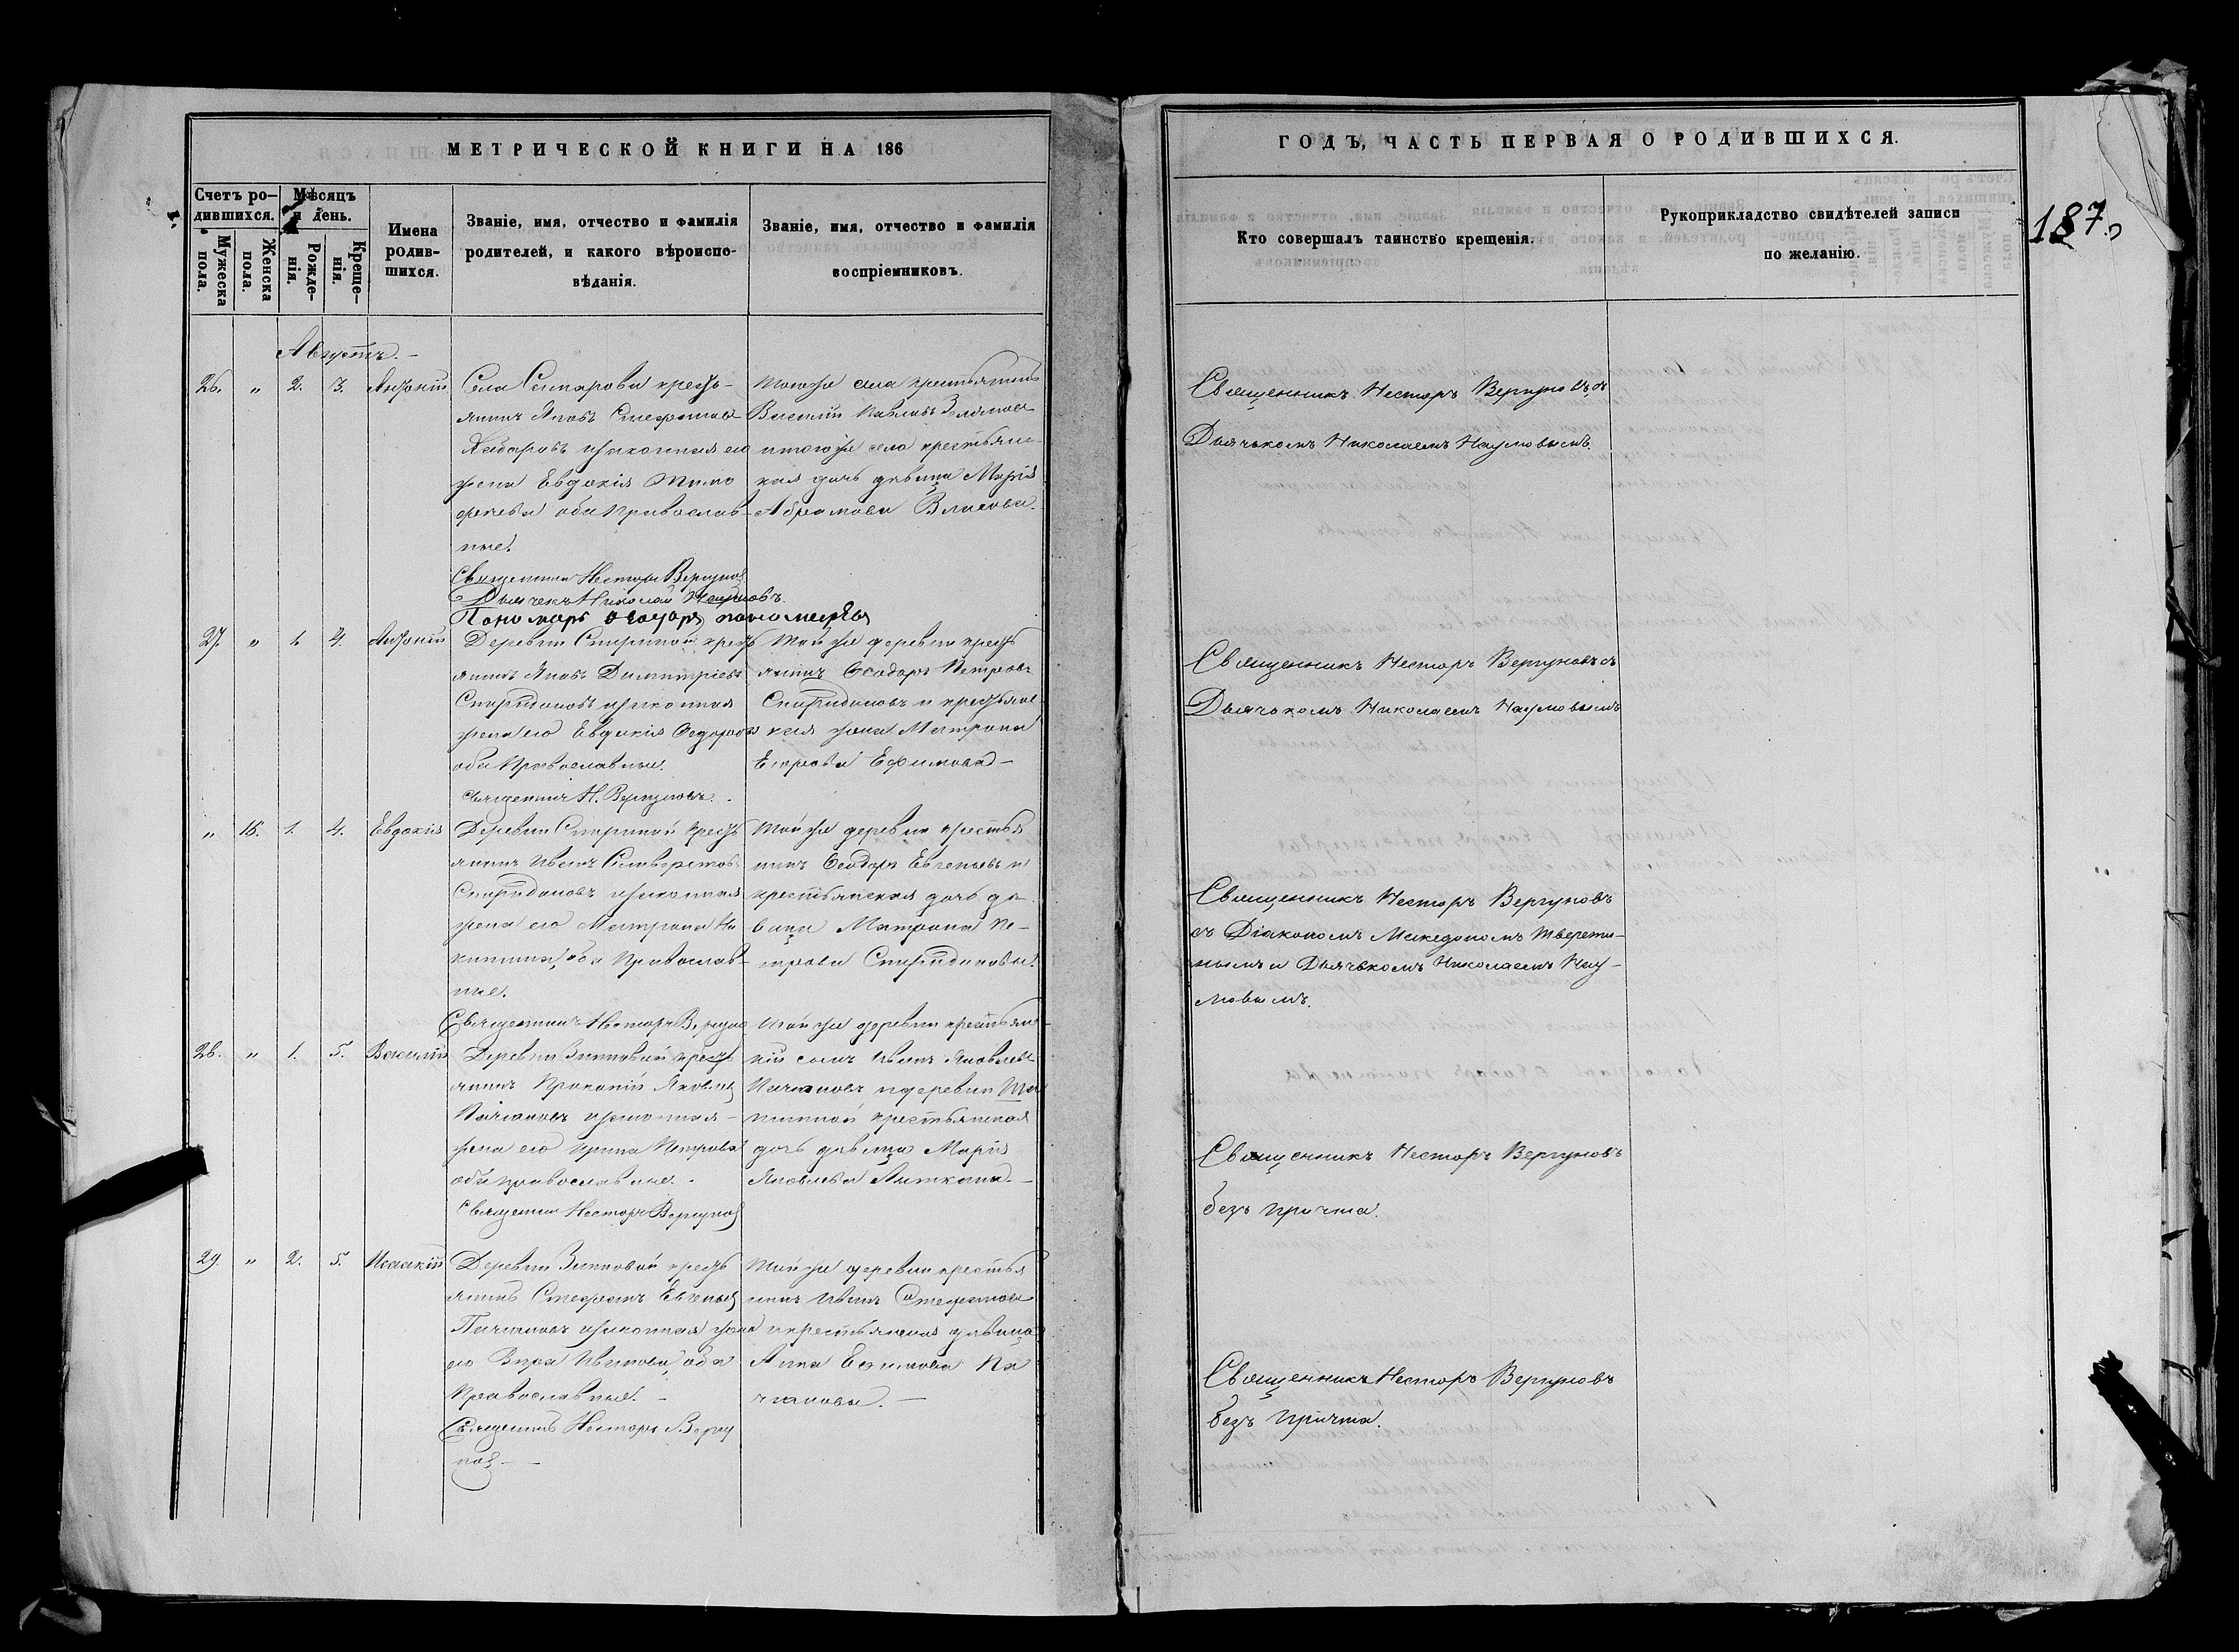 МЕТРИЧЕСКОЙ КНИГИ НА 186
Счетъ ро-
дившихся.
Мѣсяцъ
и день.
Мужеска
пола.
Женска
пола.
Рожде-
нія.
Креще-
нія.
Имена
родив-
шихся.
Званіе, имя, отчество и фамилія
родителей, и какого вѣроиспо-
вѣданія.
Званіе, имя, отчество и фамилія
воспріемниковъ.
Августъ.
26. " 2. 3. Антоній
Села Ситарова кресть-
янинъ Яковъ Стефановъ
Хабаровъ и законная его
жена Евдокія Тимо
феева оба Православ-
ные.
Священникъ Несторъ Вергуновъ
Дьячекъ Николай Наумовъ.
Пономарь Ѳеодоръ Пономаревъ
Тогоже села крестьянинъ
Василій Павловъ
и тогоже села крестьянс-
кая дочь дѣвица Марія
Абрамова Власова.
27. " 1. 4. Антоній
Деревни Спириной кресть
янинъ Яковъ Димитріевъ
Спиридоновъ и законная
жена его Евдокія Ѳедорова
оба Православные.
Священникъ Н. Вергуновъ.
Той же деревни кресть
янинъ Ѳеодоръ Петровъ
Спиридоновъ и крестьянс-
кая жена Матрона
Егорова Ефимова
" 15. 1. 4. Евдокія
Деревни Спириной кресть
янинъ Иванъ Сильверстовъ
Спиридоновъ и законная
жена его Матрона Ни
китина, оба Православ-
ные.
Священникъ Несторъ Вергунов
Той же деревни крестья
нинъ Ѳеодоръ Евгеньевъ и
крестьянская дочь дѣ-
вица Матрона Пе-
трова Спиридонова.
28. " 1. 5. Василій
Деревни Зиминой кресть
янинъ Прокопій Яковлевъ
Пачгановъ и законная
жена его Ирина Петрова
оба православные.
Священникъ Несторъ Вергуновъ
Той же деревни крестьянс-
кій сынъ Иванъ Яковлевъ
Пачгановъ и деревни
крестьянская
дочь дѣвица Марія
Яковлева
29. " 2. 5. Исаакій
Деревни Зиминой кресть
янинъ Стефанъ Евгеньевъ
Пачгановъ и законная жена
его Вѣра Иванова, оба
Православные.
Священникъ Несторъ Вергу
новъ
Той же деревни крестья
нинъ Иванъ Стефановъ
и крестьянская дѣвица
Анна Па
чганова.
ГОДЪ, ЧАСТЬ ПЕРВАЯ О РОДИВШИХСЯ.
Кто совершалъ таинство крещенія.
Рукоприкладство свидѣтелей записи
по желанію.
187.
Священникъ Несторъ Вергуновъ съ
Дьячькомъ Николаемъ Наумовымъ.
Священникъ Несторъ Вергуновъ съ
Дьячькомъ Николаемъ Наумовымъ
Священникъ Несторъ Вергуновъ
съ Діакономъ Македономъ Тверети-
нымъ и Дьячькомъ Николаемъ Нау-
мовымъ.
Священникъ Несторъ Вергуновъ
безъ причта.
Священникъ Несторъ Вергуновъ
безъ причта.